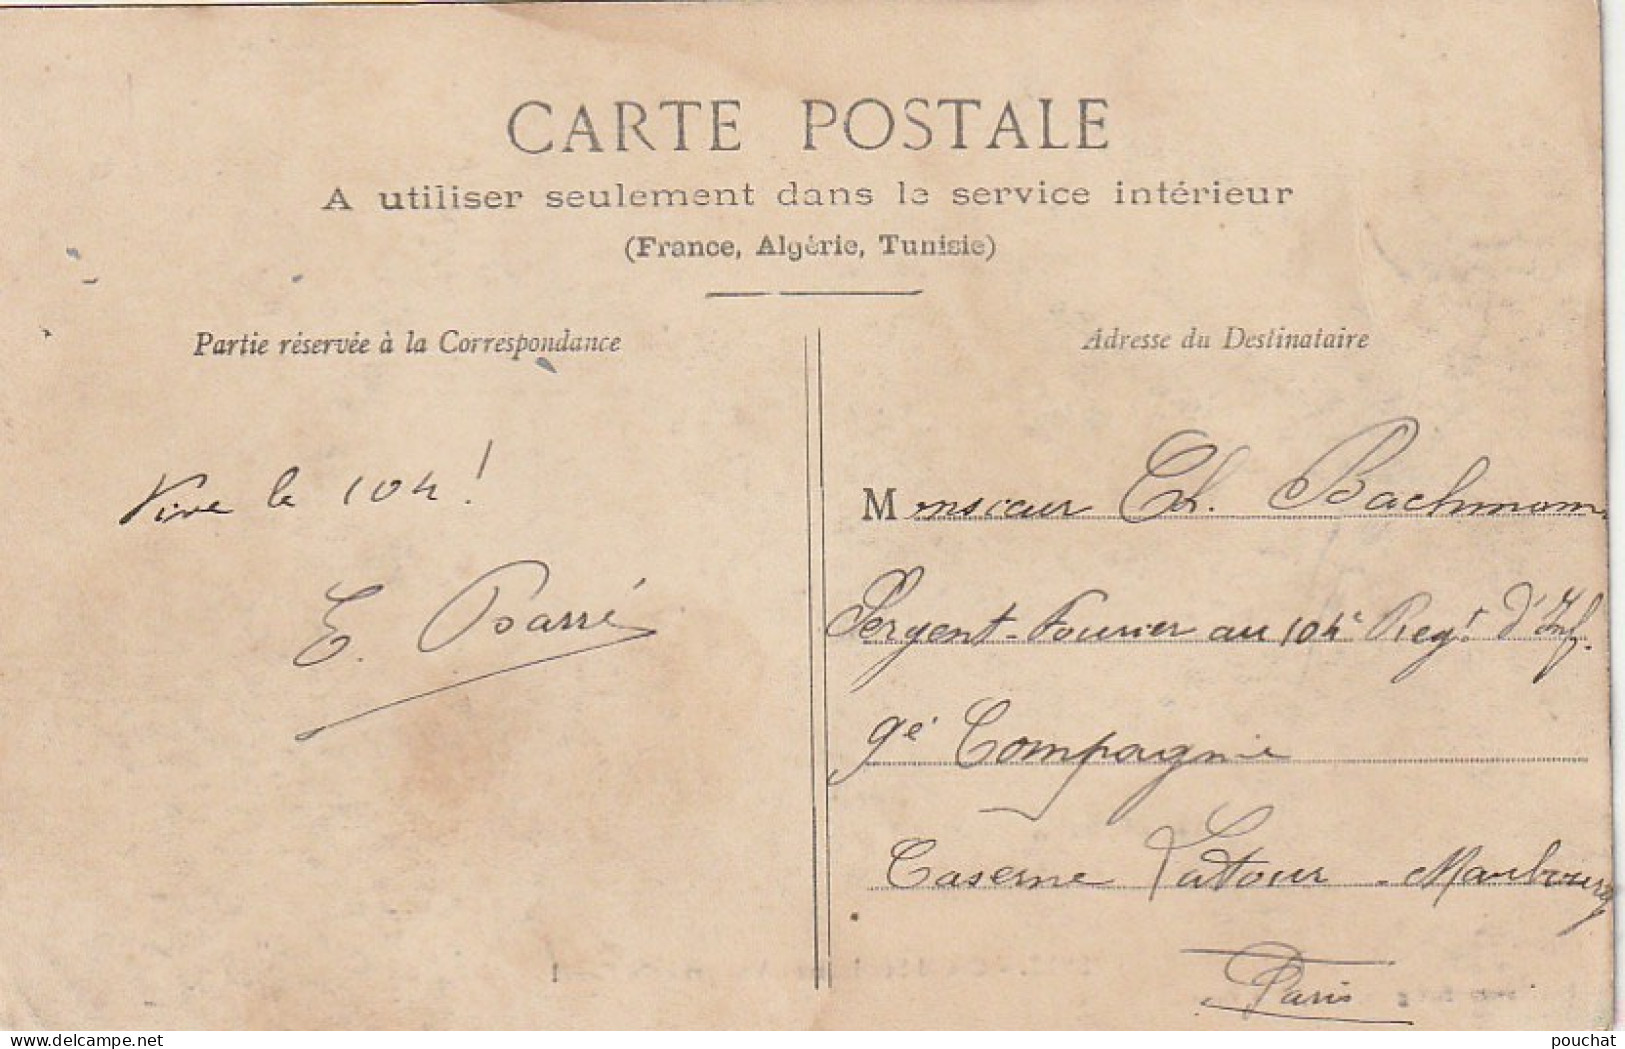 CARTE POSTALE
A utiliser seulement dans le service intérieur
(France, Algérie, Tunisie)
Partie réservée à la Correspondance
Vive le 104 !
E. Barré
Adresse du Destinataire
Monsieur Ch. Bachmann
Sergent-Fourrier au 104e Regt d'Inf.
9e Compagnie
Caserne Latour-Maubourg
Paris
www.delcampe.net
pouchat